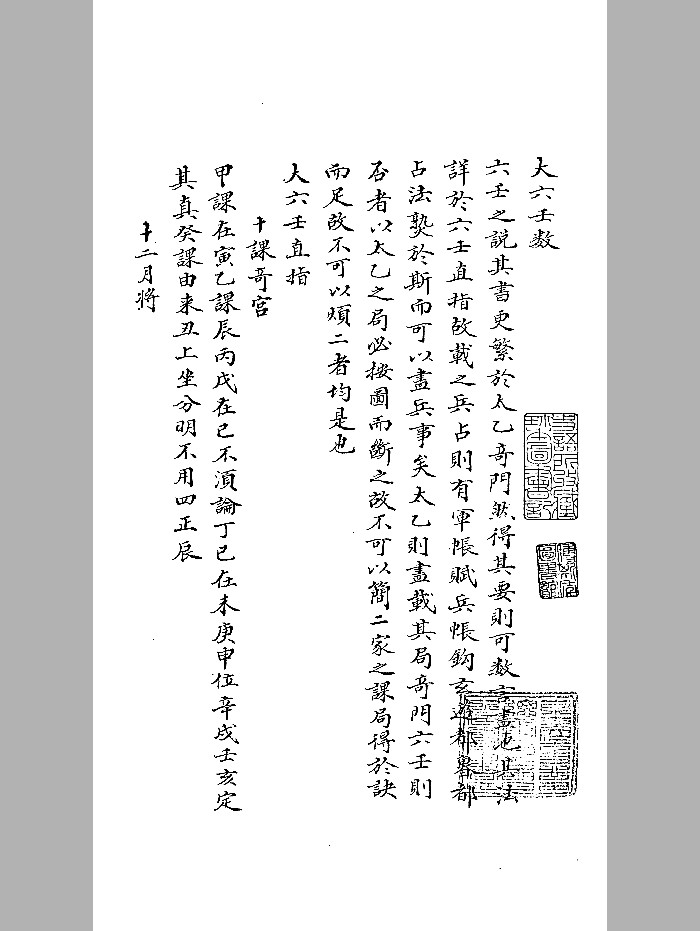 大六壬数
六壬之說其書更繁於太乙奇門然得其要則可数言盡也其法
詳於六壬直指故載之兵占則有軍帳賦兵帳鈎玄遊都魯都
占法槩於斯而可以盡兵事矣太乙則畫載其局奇門六壬則
否者以太乙之局必按圖而斷之故不可以簡二家之課局得於訣
而足故不可以煩二者均是也
大六壬直指
十課奇宮
甲課在寅乙課辰丙戊在巳不湏論丁己在未庚申位辛戌壬亥定
其真癸課由来丑上坐分明不用四正辰
十二月將